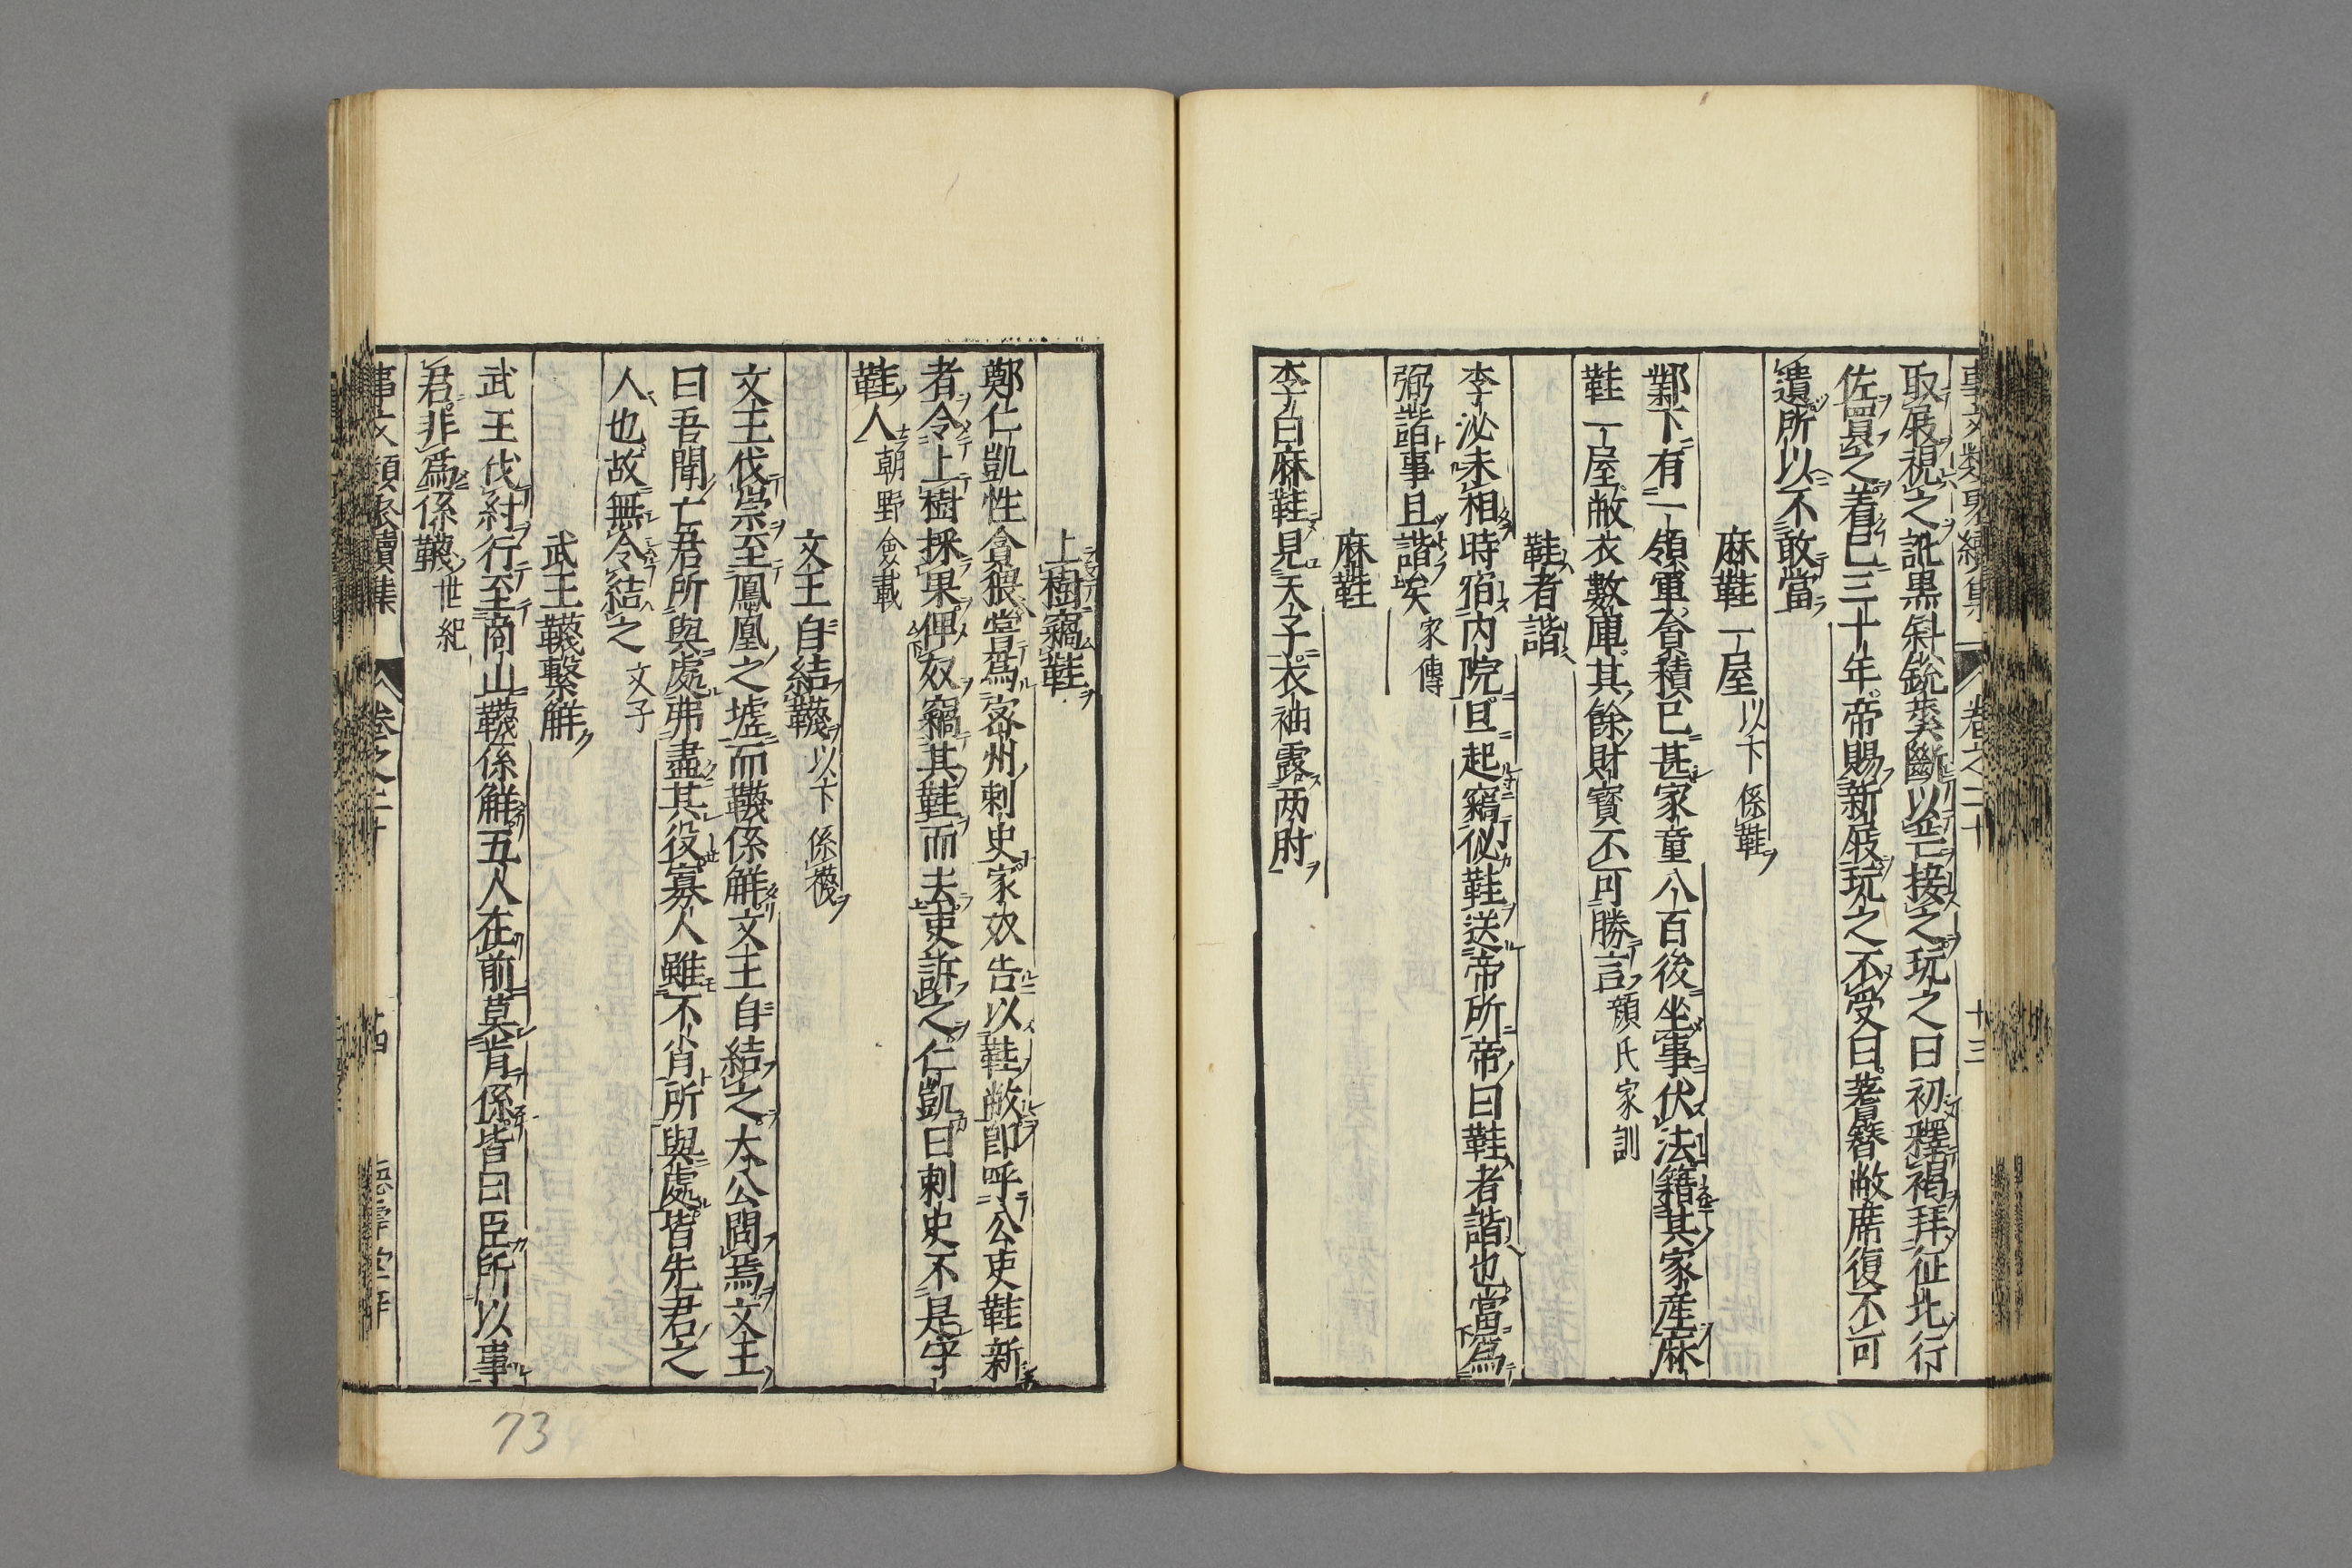 事文類聚續集 卷之二十 十三
取屐視之訛黒斜銳蔞斷以芒接之玩之曰初釋褐拜征北行
佐買之着已三十年帝賜新屐玩之不受曰著簪敝席復不可
遺所以不敢當
麻鞋一屋以下係鞋
鄴下有一領軍貪積已甚家童八百後坐事伏法籍其家産麻
鞋一屋敝衣數庫其餘財寶不可勝言顔氏家訓
鞋者諧
李泌未相時宿内院旦起竊鞋送帝所帝曰鞋者諧也當爲
弼諧事且諧矣家傳
麻鞋
李白麻鞋見天子衣袖露两肘
上樹竊鞋
鄭仁凱性貪猥嘗爲宻州刺史家奴告以鞋敝即呼公吏鞋新
者令上樹採果俾奴竊其鞋而去吏訴之仁凱曰刺史不是守
鞋人朝野僉載
文王自結韈以下係襪
文王伐崇至鳳凰之墟而韈係解文王自結之太公問焉文王
曰吾聞亡君所與處弗盡其役寡人雖不肖所與處皆先君之
人也故無令結之文子
武王韈繫解
武王伐紂行至商山韈係解五人在前莫肯係皆曰臣所以事
君非爲係韈世紀
事文類聚續集 卷之二十 十四